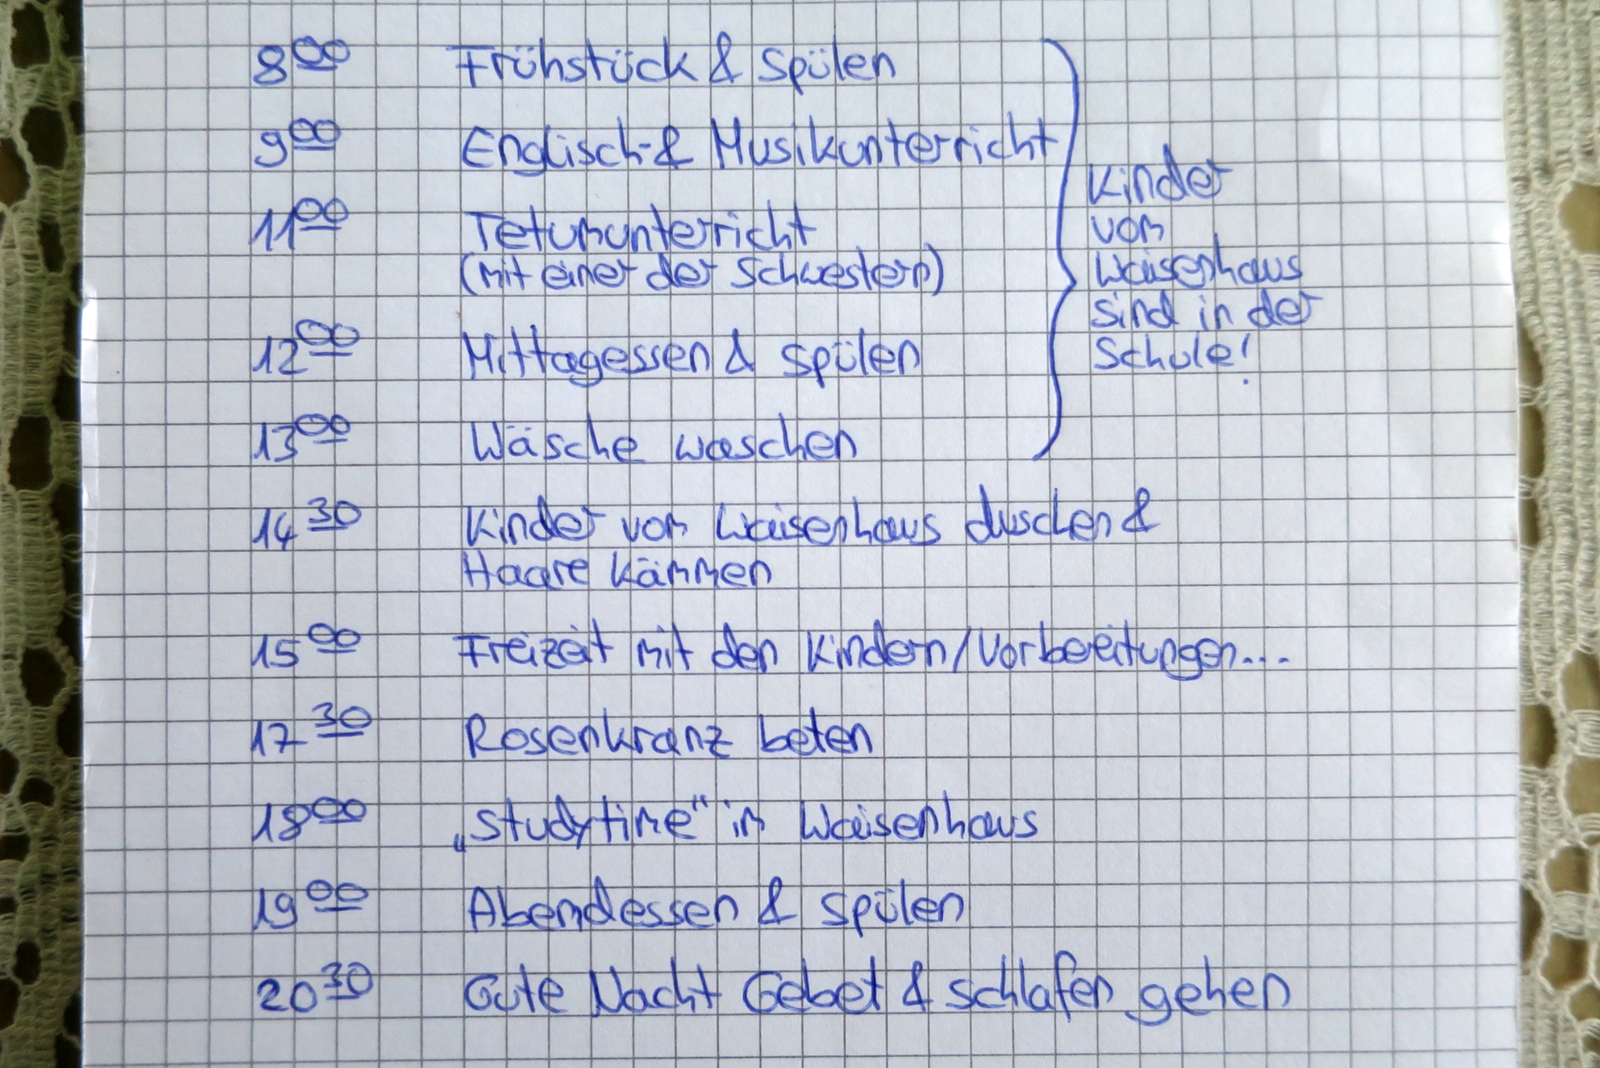 8⁰⁰ Frühstück & Spülen
9⁰⁰ Englisch- & Musikunterricht
11⁰⁰ Tetumunterricht
(mit einer der Schwestern)
12⁰⁰ Mittagessen & Spülen
13⁰⁰ Wäsche waschen
Kinder
vom
Waisenhaus
sind in der
Schule!
14³⁰ Kinder vom Waisenhaus duschen &
Haare kämmen
15⁰⁰ Freizeit mit den Kindern/Vorbereitungen...
17³⁰ Rosenkranz beten
18⁰⁰ „Studytime“ im Waisenhaus
19⁰⁰ Abendessen & Spülen
20³⁰ Gute Nacht Gebet & schlafen gehen